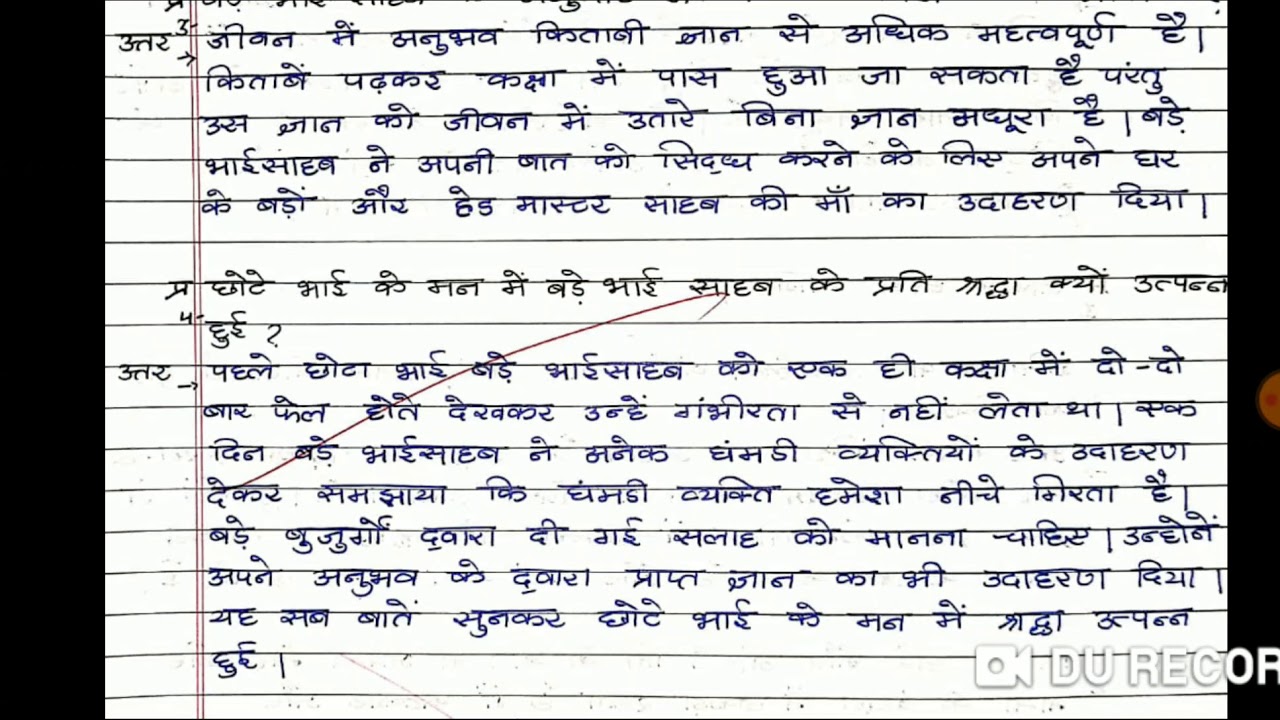 उत्तर 3- जीवन में अनुभव किताबी ज्ञान से अधिक महत्वपूर्ण है।
→ किताबें पढ़कर कक्षा में पास हुआ जा सकता है परंतु
उस ज्ञान को जीवन में उतारे बिना ज्ञान अधूरा है। बड़े
भाईसाहब ने अपनी बात को सिद्ध करने के लिए अपने घर
के बड़ों और हेड मास्टर साहब की माँ का उदाहरण दिया।
प्र छोटे भाई के मन में बड़े भाई साहब के प्रति श्रद्धा क्यों उत्पन्न
4- हुई ?
उत्तर → पहले छोटा भाई बड़े भाईसाहब को एक ही कक्षा में दो-दो
बार फेल होते देखकर उन्हें गंभीरता से नहीं लेता था। एक
दिन बड़े भाईसाहब ने अनेक घंमडी व्यक्तियों के उदाहरण
देकर समझाया कि घंमडी व्यक्ति हमेशा नीचे गिरता है।
बड़े बुजुर्गों द्वारा दी गई सलाह को मानना चाहिए। उन्होनें
अपने अनुभव के द्वारा प्राप्त ज्ञान का भी उदाहरण दिया।
यह सब बातें सुनकर छोटे भाई के मन में श्रद्धा उत्पन्न
हुई।
DU RECOR